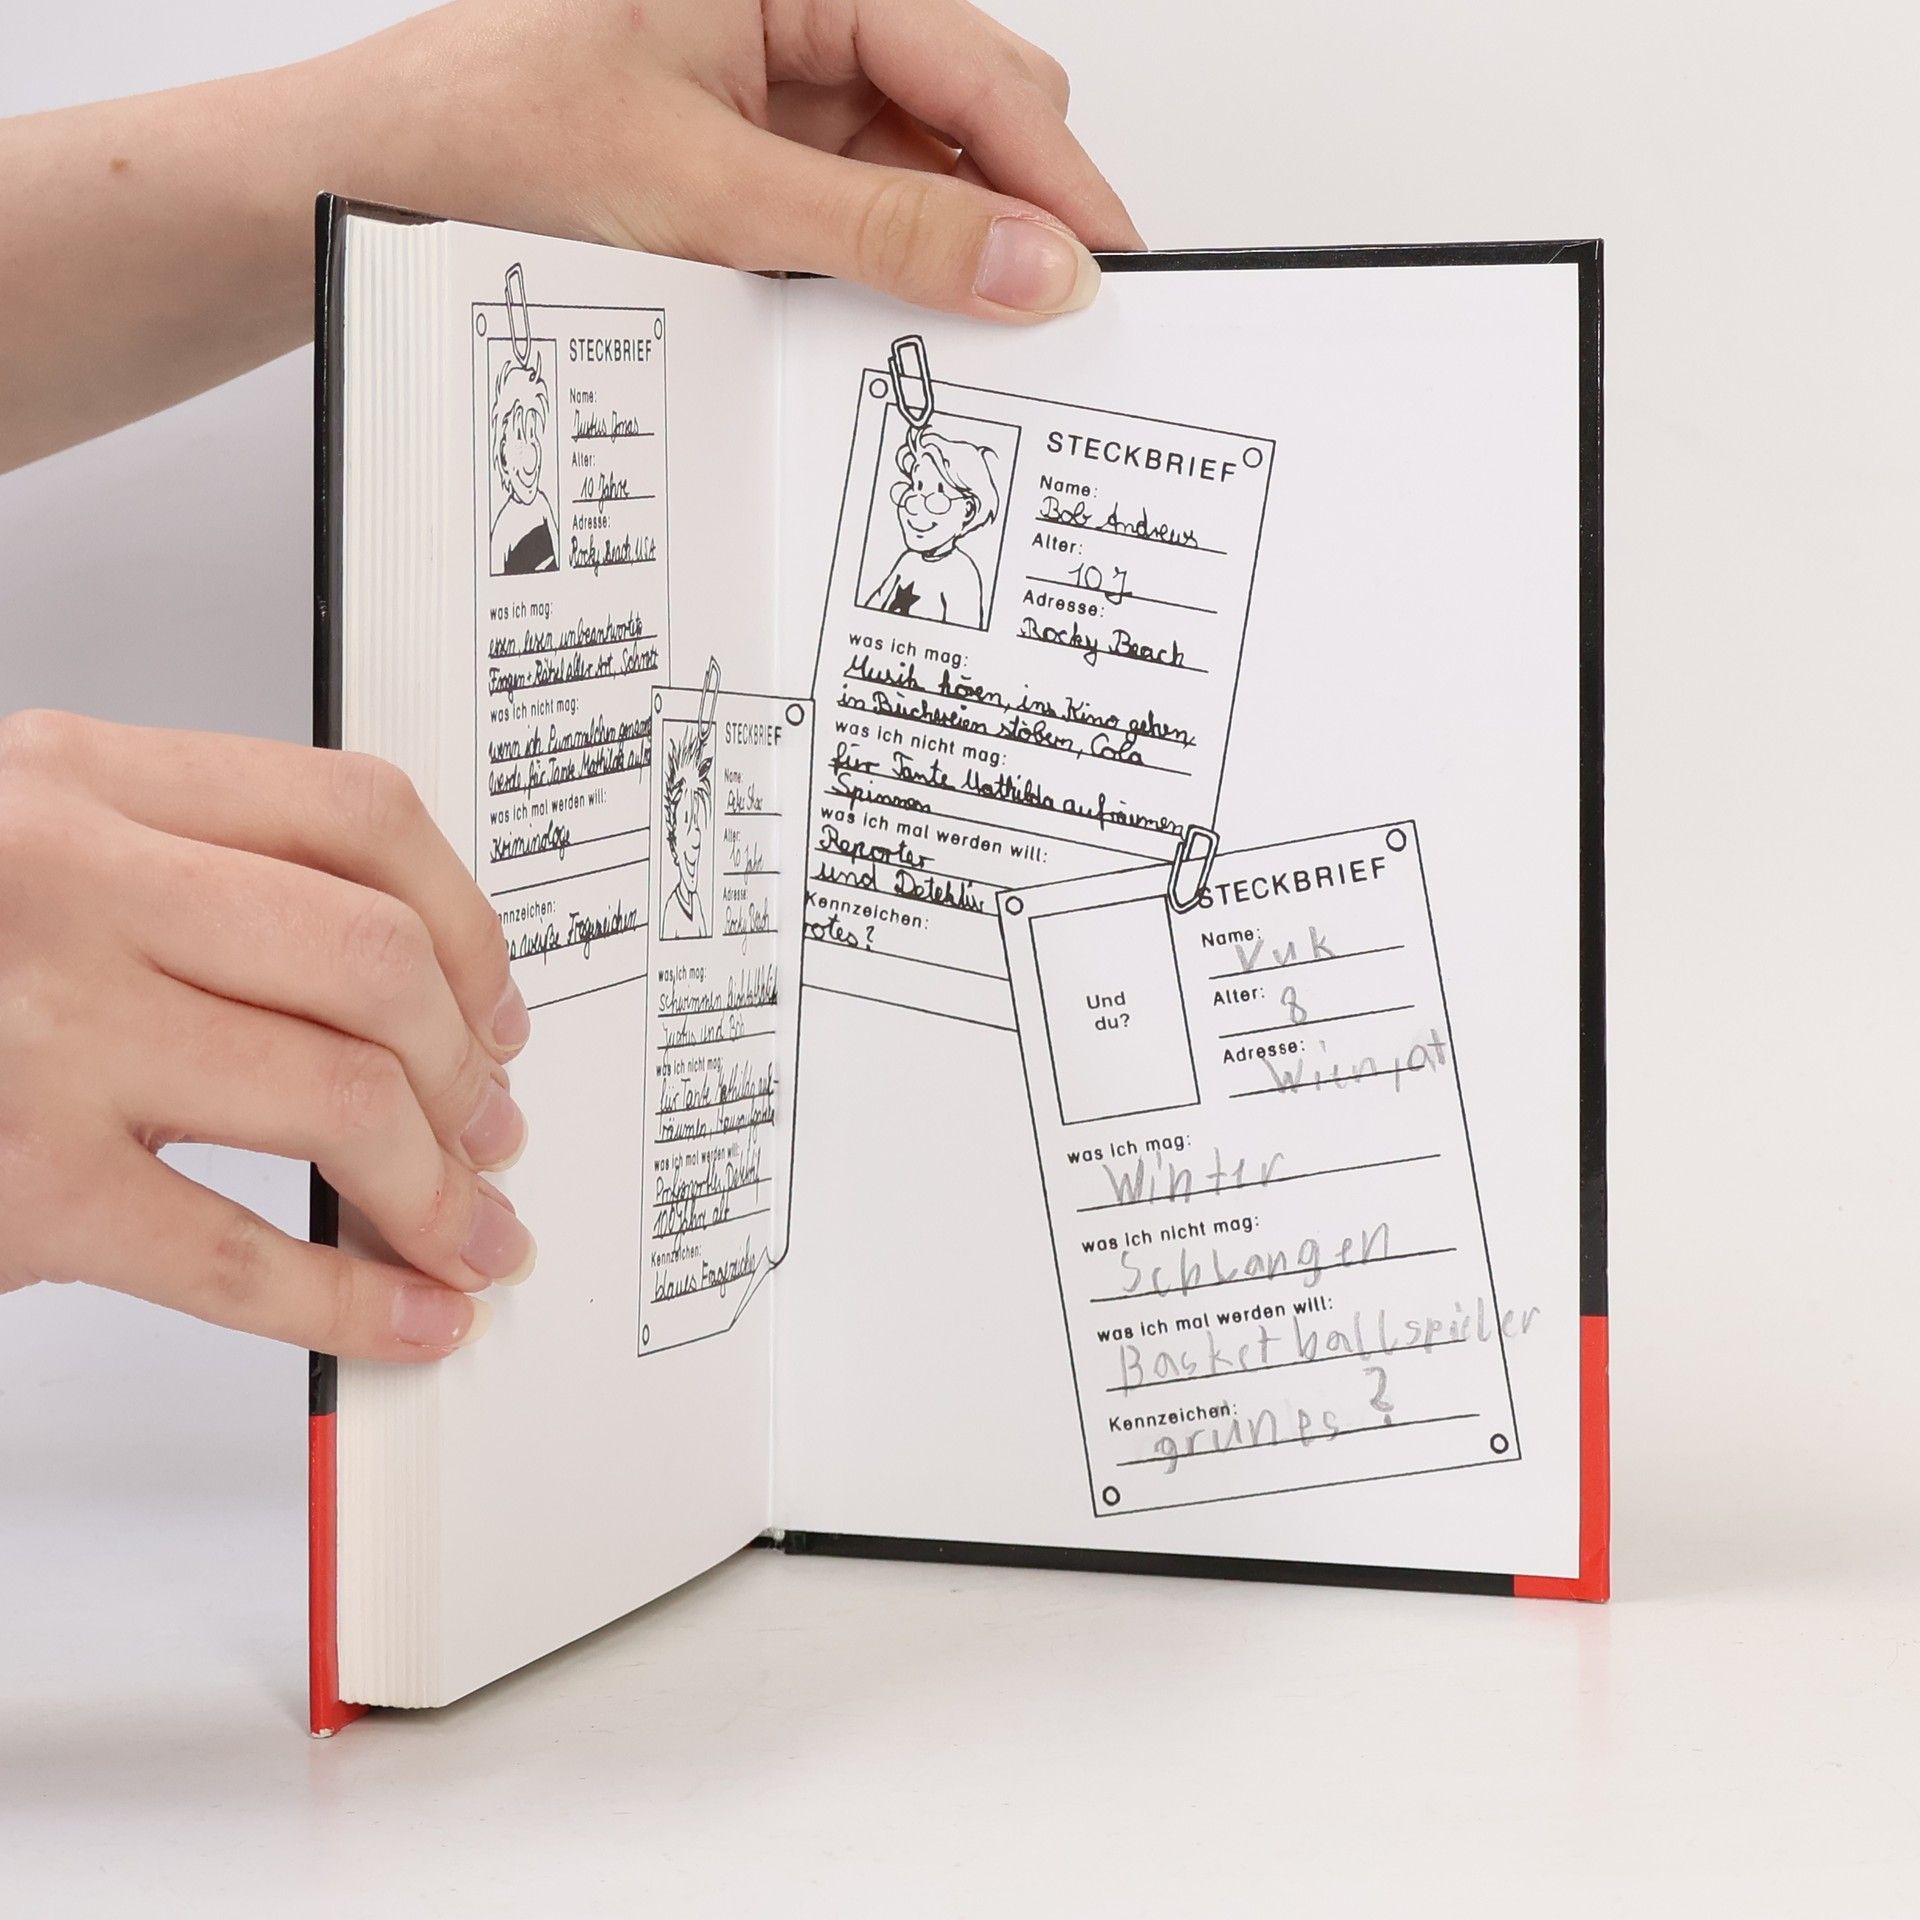 STECKBRIEF
Name:
Justus Jonas
Alter:
10 Jahre
Adresse:
Rocky Beach, USA
was ich mag:
essen, lesen, unbeantwortete
Fragen + Rätsel aller Art, Schrott
was ich nicht mag:
wenn ich Pummelchen genannt
werde, für Tante Mathilda aufr
was ich mal werden will:
Kriminologe
nnzeichen:
weiße Fragezeichen
STECKBRIEF
Name:
Peter Shaw
Alter:
10 Jahre
Adresse:
Rocky Beach
was ich mag:
Schwimmen,
Justus und Bob
was ich nicht mag:
für Tante Mathilda auf-
räumen, Hausaufgaben
was ich mal werden will:
Profisportler, Detektiv
100 Jahre alt
Kennzeichen:
blaues Fragezeichen
STECKBRIEF
Name:
Bob Andrews
Alter:
10 J
Adresse:
Rocky Beach
was ich mag:
Musik hören, ins Kino gehen,
in Büchereien stöbern, Cola
was ich nicht mag:
für Tante Mathilda aufräumen,
Spinnen
was ich mal werden will:
Reporter
und Detektiv
Kennzeichen:
rotes ?
STECKBRIEF
Und
du?
Name:
Vuk
Alter:
8
Adresse:
Wien, at
was ich mag:
Winter
was ich nicht mag:
Schlangen
was ich mal werden will:
Basketballspieler
Kennzeichen:
grünes ?